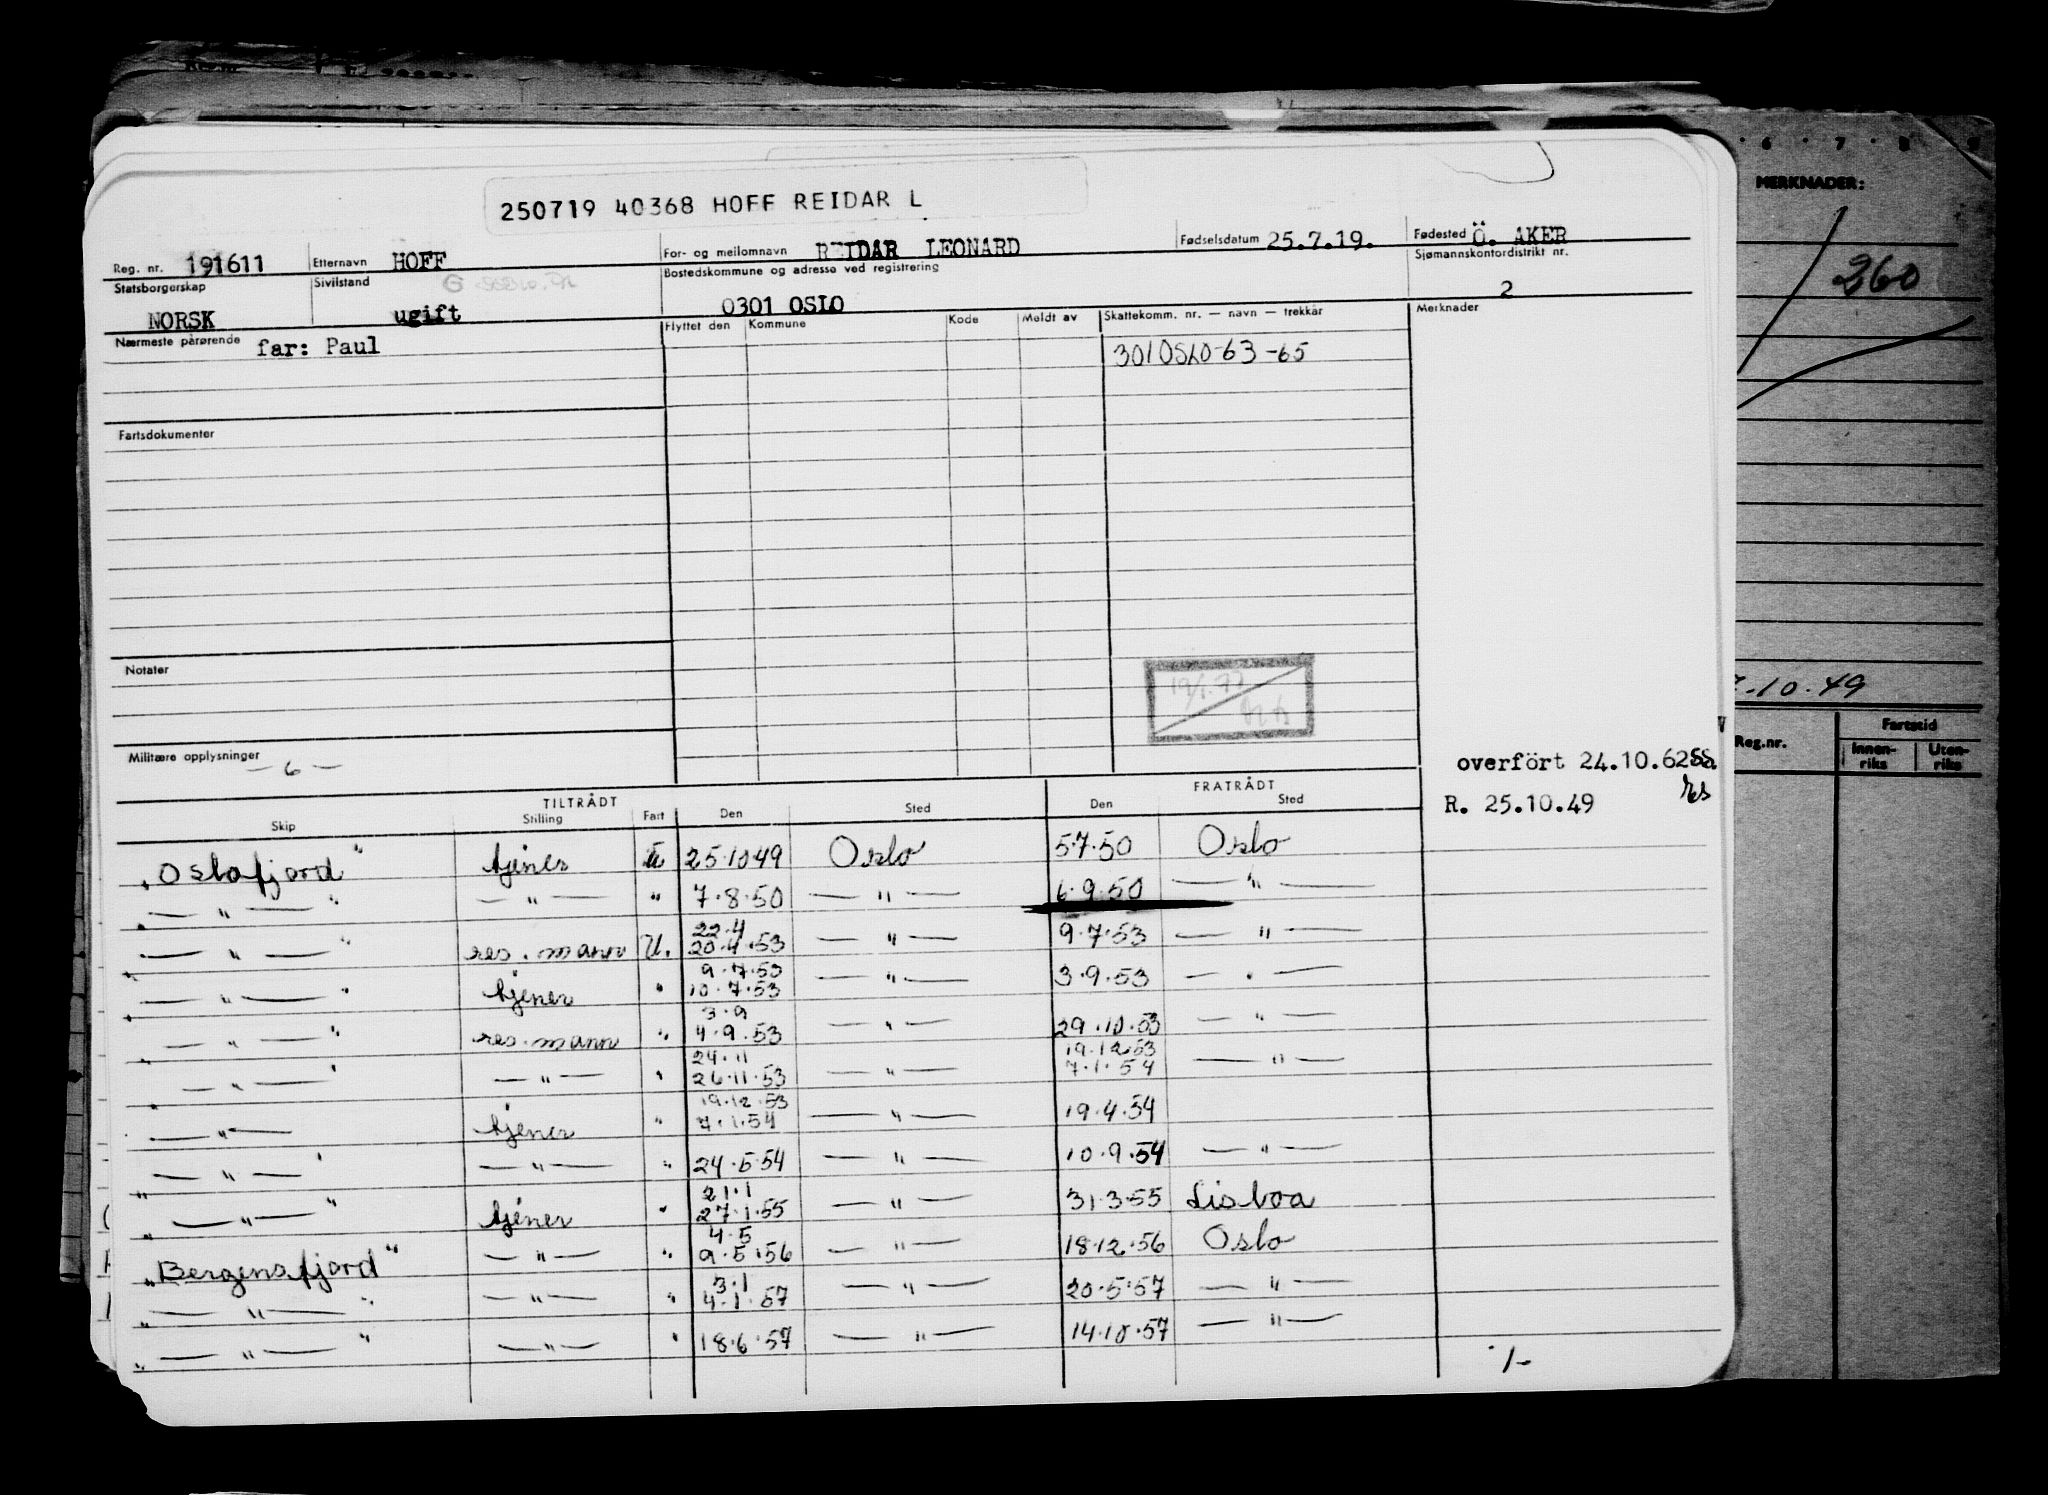 250719 40368 HOFF REIDAR L
Reg. nr. 191611 Etternavn HOFF For- og mellomnavn REIDAR LEONARD Fødselsdatum 25.7.19. Fødested Ö. AKER
Statsborgerskap NORSK Sivilstand ugift Bostedskommune og adresse ved registrering 0301 OSLO Sjømannskontordistrikt nr. 2
Nærmeste pårørende far: Paul Flyttet den Kommune Kode Meldt av Skattekomm. nr. — navn — trekkår Merknader
301 OSLO-63-65
Fartsdokumenter
Notater
Militære opplysninger
— 6 —
overfört 24.10.62
R. 25.10.49
TILTRÅDT FRATRÅDT
Skip Stilling Fart Den Sted Den Sted
"Oslofjord" tjener U 25.10.49 Oslo 5.7.50 Oslo
" — " — " — " — " 7.8.50 — " — 6.9.50 — " —
" — " — " res. mann U. 22.4 20.4.53 — " — 9.7.53 — " —
" — " — " tjener " 9.7.53 10.7.53 — " — 3.9.53 — " —
" — " — " res. mann " 3.9 4.9.53 — " — 29.10.53 — " —
" — " — " — " — " 24.11 26.11.53 — " — 19.12.53 7.1.54 — " —
" — " — tjener " 19.12.53 7.1.54 — " — 19.4.54
" — " — " — " — " 24.5.54 — " — 10.9.54 — " —
" — " — " tjener " 21.1 27.1.55 — " — 31.3.55 Lisboa
"Bergensfjord" — " — " 4.5 9.5.56 — " — 18.12.56 Oslo
" — " — " — " — " 3.1 4.1.57 — " — 20.5.57 — " —
" — " — " — " — " 18.6.57 — " — 14.10.57 — " —
·/-
6 · 7 · 8 · 9
MERKNADER:
360
.10.49
Reg.nr. Fartstid
Innen-riks Uten-riks